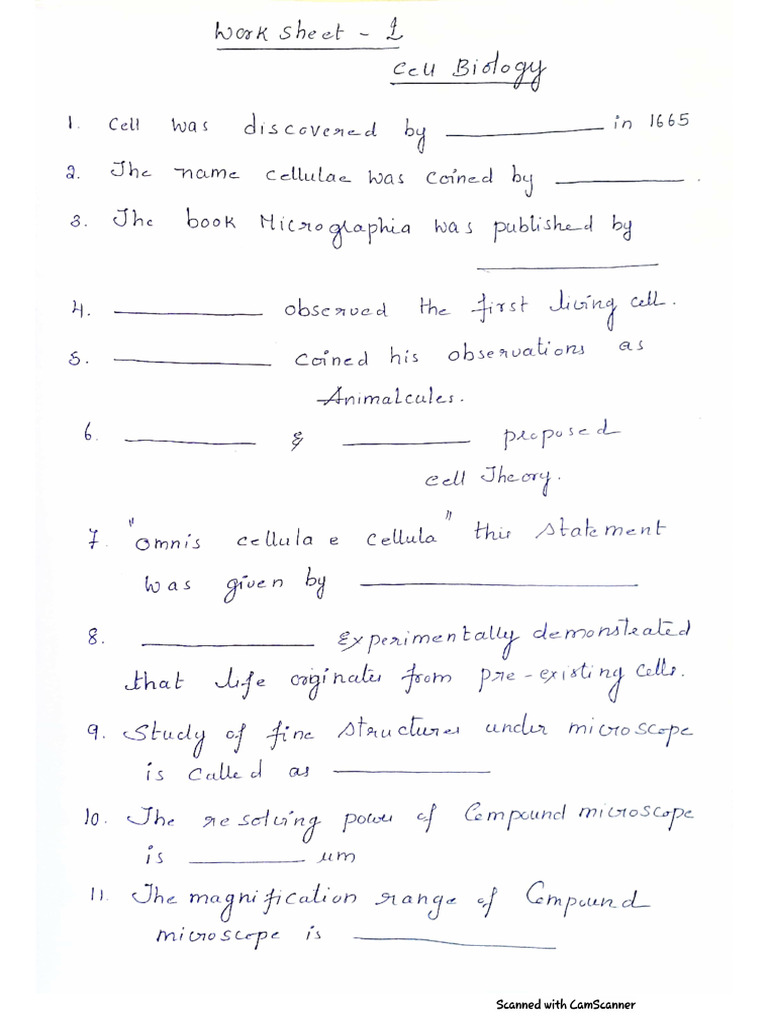 Work Sheet - 1
Cell Biology
1. Cell was discovered by __________ in 1665
2. The name cellulae was coined by __________ .
3. The book Micrographia was published by
__________
4. __________ observed the first living cell.
5. __________ coined his observations as
Animalcules.
6. __________ & __________ proposed
Cell Theory.
7. "Omnis cellula e cellula" this statement
was given by __________
8. __________ Experimentally demonstrated
that life originates from pre-existing cells.
9. Study of fine structures under microscope
is called as __________
10. The resolving power of Compound microscope
is __________ um
11. The magnification range of Compound
microscope is __________
Scanned with CamScanner